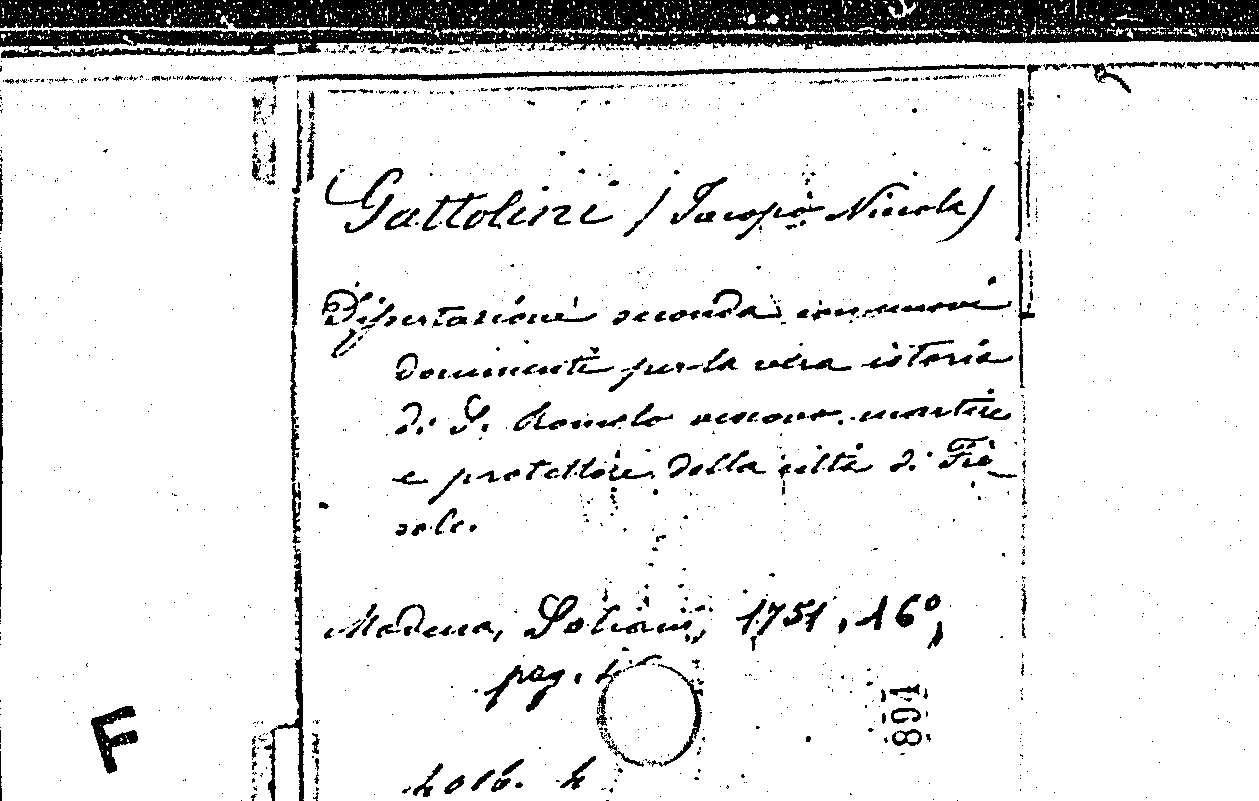 Gattolini (Jacopo Nicola)
Dissertazione seconda con nuovi
documenti per la vera istoria
di S. Romolo vescovo. martire
e protettore della città di Fie_
sole.
Modena, Soliani, 1751, 16°,
pag.
891
F